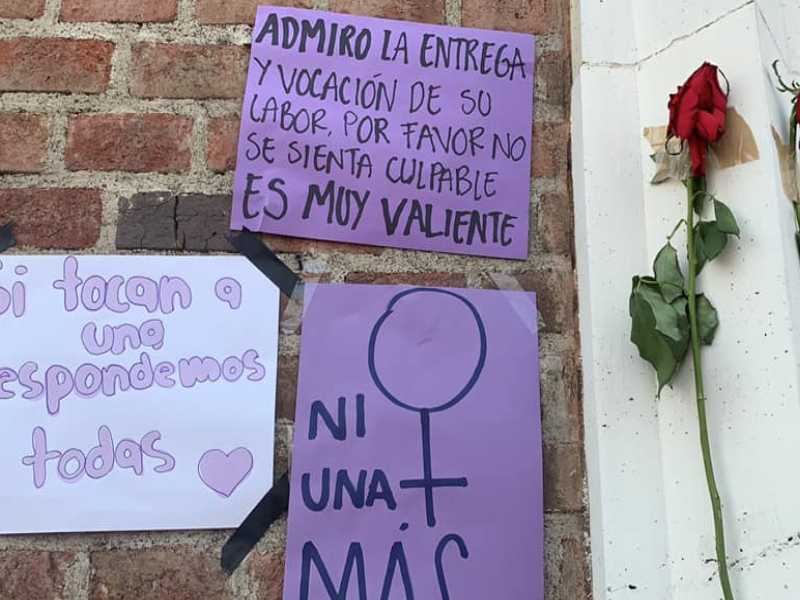 ADMIRO LA ENTREGA
Y VOCACIÓN DE SU
LABOR, POR FAVOR NO
SE SIENTA CULPABLE
ES MUY VALIENTE
Si tocan a
una
respondemos
todas
NI
UNA
MÁS